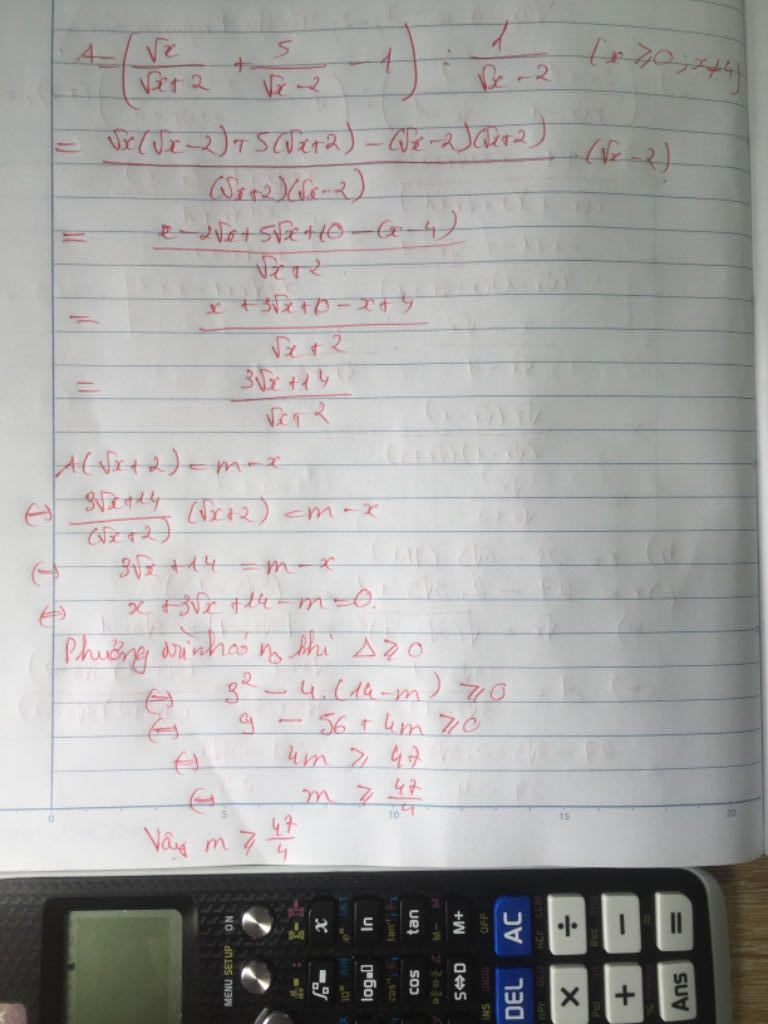 A = (√x/(√x+2) + 5/(√x-2) - 1) : 1/(√x-2) (x ≥ 0; x ≠ 4)
= (√x(√x-2) + 5(√x+2) - (√x-2)(√x+2))/((√x+2)(√x-2)) . (√x-2)
= (x - 2√x + 5√x + 10 - (x-4))/(√x+2)
= (x + 3√x + 10 - x + 4)/(√x+2)
= (3√x+14)/(√x+2)
A(√x+2) = m - x
⇔ (3√x+14)/(√x+2) (√x+2) = m - x
⇔ 3√x + 14 = m - x
⇔ x + 3√x + 14 - m = 0.
Phương trình có n₀ khi Δ ≥ 0
⇔ 3² - 4.(14-m) ≥ 0
⇔ 9 - 56 + 4m ≥ 0
⇔ 4m ≥ 47
⇔ m ≥ 47/4
0 5 10 15 20
Vậy m ≥ 47/4
ON
MENU SETUP
x
ln
tan
M+
log
cos
S⇔D
OFF
AC
DEL
INS
UNDO
÷
−
=
×
+
Ans